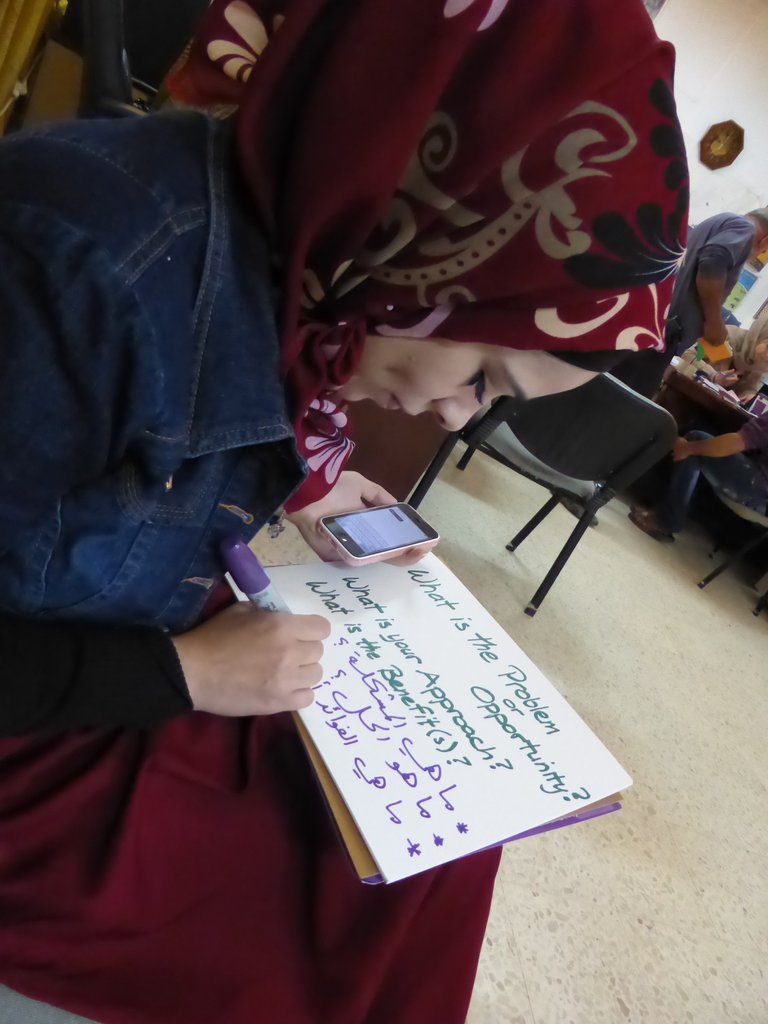 What is the Problem
or
Opportunity?
What is your Approach?
What is the Benefit(s)?
* ما هي المشكلة؟
* ما هو الحل؟
* ما هي الفوائد